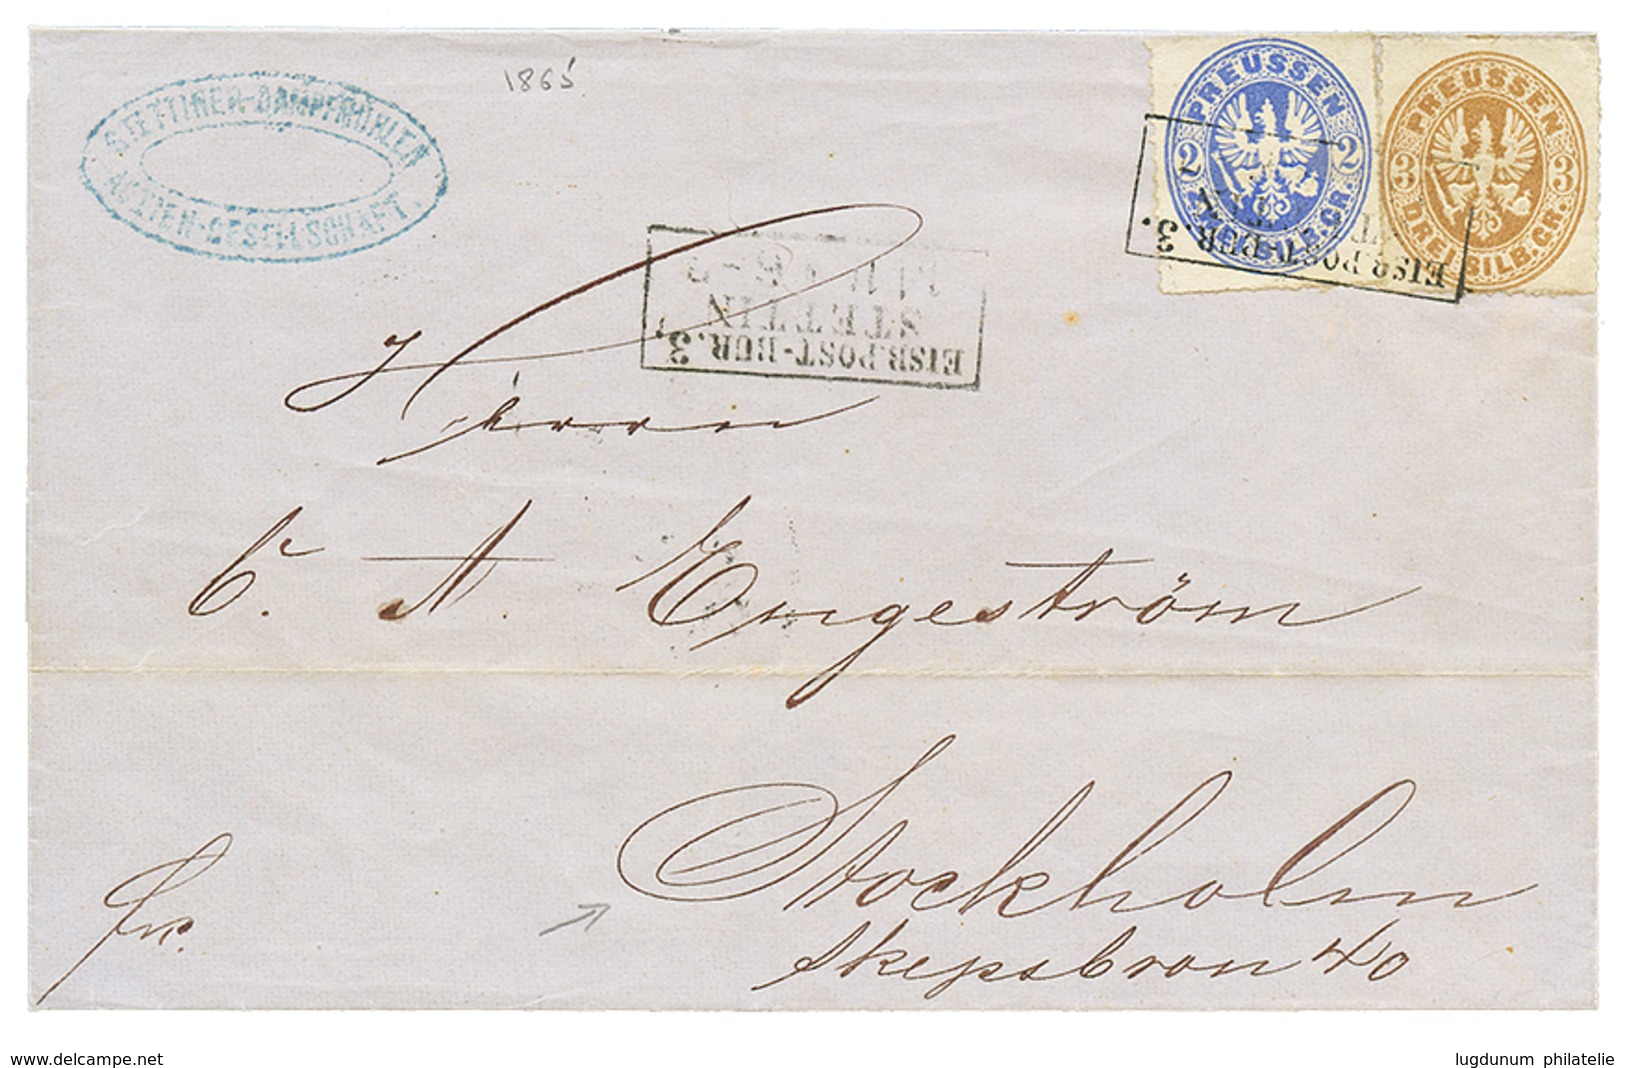 STETTINER-DAMPFMÜHLEN
ACTIEN-GESELLSCHAFT.
1865
PREUSSEN
2 2
SILB.GR.
PREUSSEN
3 3
DREI SILB.GR.
EISB.POST-BUR.3.
EISB.POST-BUR.3.
STETTIN
Herrn
C. A. Engeström
Stockholm
Skepsbron 40
fr.
www.delcampe.net
lugdunum philatelie